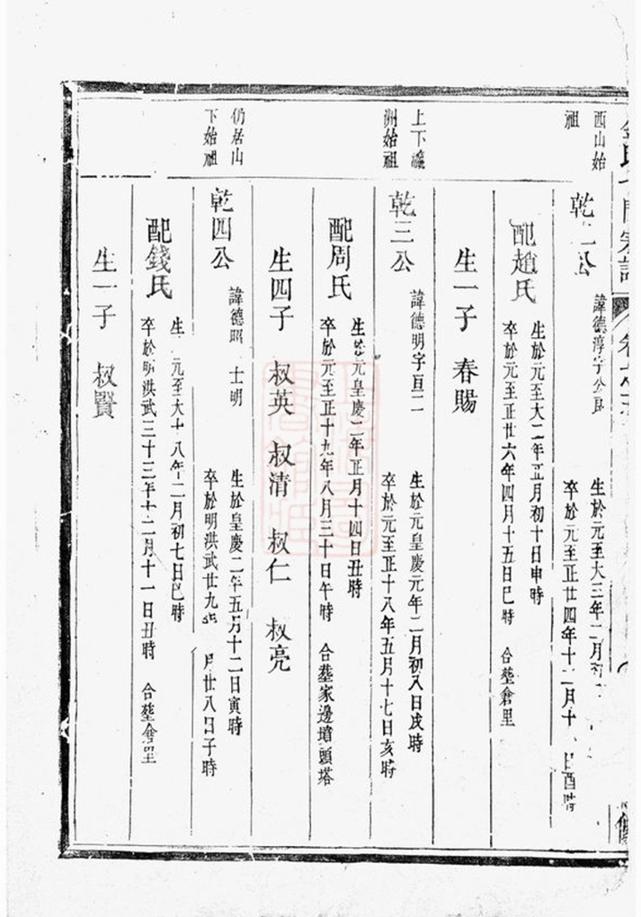 西山始
祖
乾二公
諱德淳字公良
生於元至大三年二月初
卒於元至正廿四年十二月十 日酉時
配趙氏
生於元至大二年正月初十日申時
卒於元至正廿六年四月十五日巳時 合塟倉里
生一子 春賜
上下
始祖
乾三公
諱德明字亘二
生於元皇慶元年二月初八日戌時
卒於元至正十八年五月十七日亥時
配周氏
生於元皇慶二年正月十四日丑時
卒於元至正十九年八月三十日午時 合塟家邊墳頭塔
生四子 叔英 叔清 叔仁 叔亮
仍居山
下始祖
乾四公
諱德昭 士明
生於皇慶二年五月十二日寅時
卒於明洪武廿九 月廿八日子時
配錢氏
生 元至大十八年二月初七日巳時
卒於明洪武三十三年十二月十一日丑時 合塟倉里
生一子 叔賢